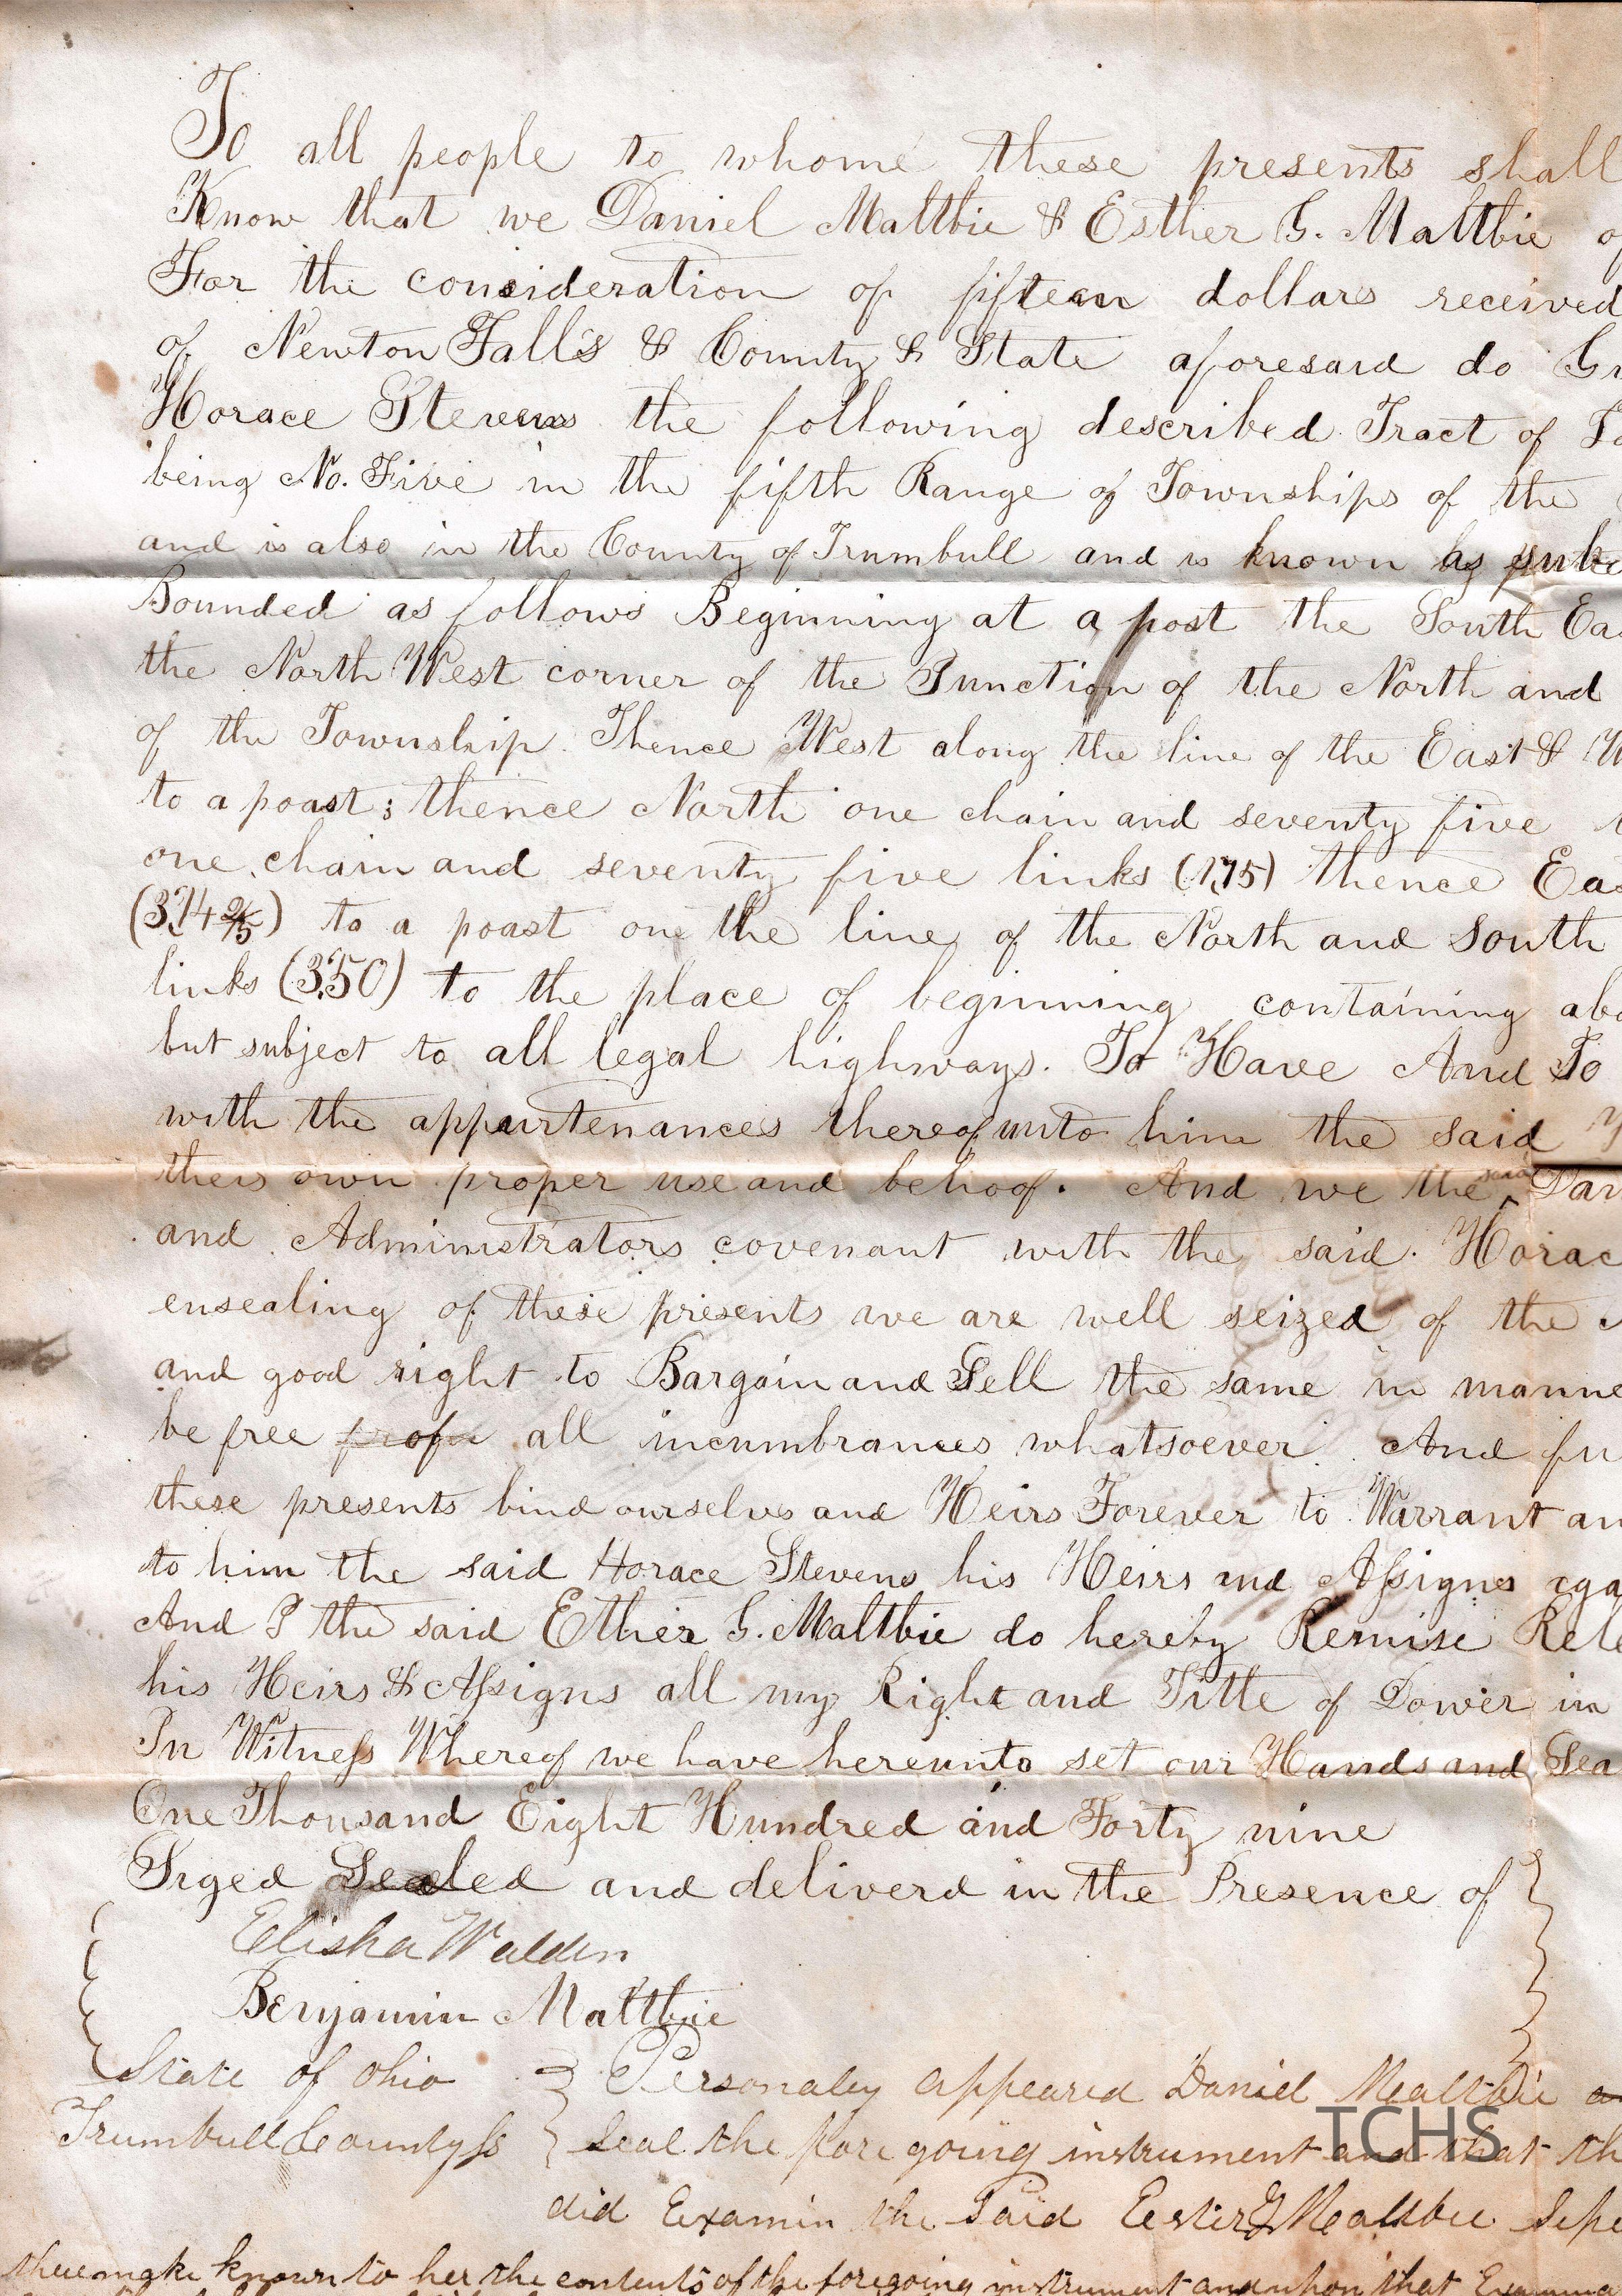 To all people to whome these presents shall
Know that we Daniel Maltbie & Esther G. Maltbie of
For the consideration of fifteen dollars received
of Newton Falls & County & State aforesaid do Gr
Horace Stevens the following described Tract of La
being No. Five in the fifth Range of Townships of the
and is also in the County of Trumbull and is known by
Bounded as follows Beginning at a post the South Eas
the North West corner of the Junction of the North and
of the Township. Thence West along the line of the East & W
to a poast; thence North one chain and seventy five
one chain and seventy five links (1,75) thence Eas
(3,14 2/5) to a poast one the line of the North and South
links (3,50) to the place of beginning containing abo
but subject to all legal highways. To Have And To
with the appurtenances thereof unto him the said
theis own proper use and behoof. And we the said Dan
and Administrators covenant with the said Horac
ensealing of these presents we are well seized of the
and good right to Bargain and Sell the same in manne
be free all incumbrances whatsoever. And fu
these presents bind ourselves and Heirs Forever to Warrant an
to him the said Horace Stevens his Heirs and Assigns aga
And I the said Esther G. Maltbie do hereby Remise Rele
his Heirs & Assigns all my Right and Title of Dower in
In Witness Whereof we have hereunto set our Hands and Sea
One Thousand Eight Hundred and Forty nine
Siged Sealed and deliverd in the Presence of
Elisha Walden
Benjamin Maltbie
State of Ohio
Trumbull County ss
Personaley appeared Daniel Maltbie
Seal the fore going instrument and that th
did Examin the Said Ester G Maltbie Sepe
there make known to her the contents of the foregoing instrument and uhon that Examina
TCHS